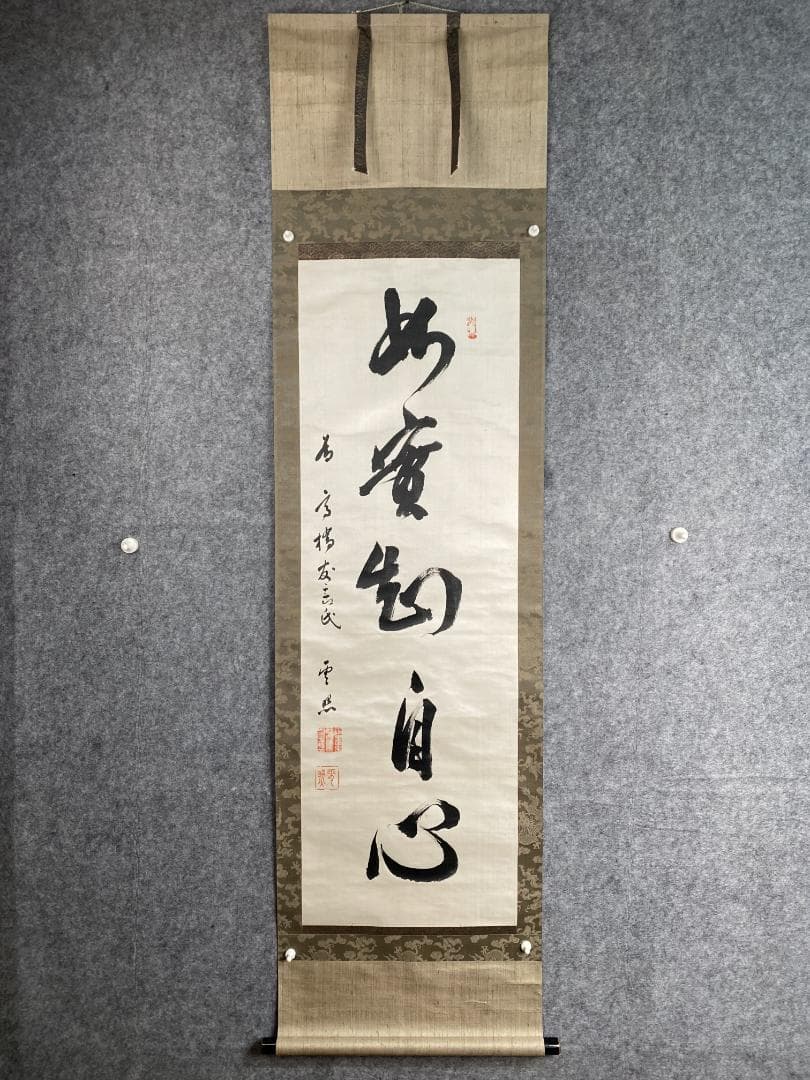 如實知自心
為 高橋友吉氏 雲照